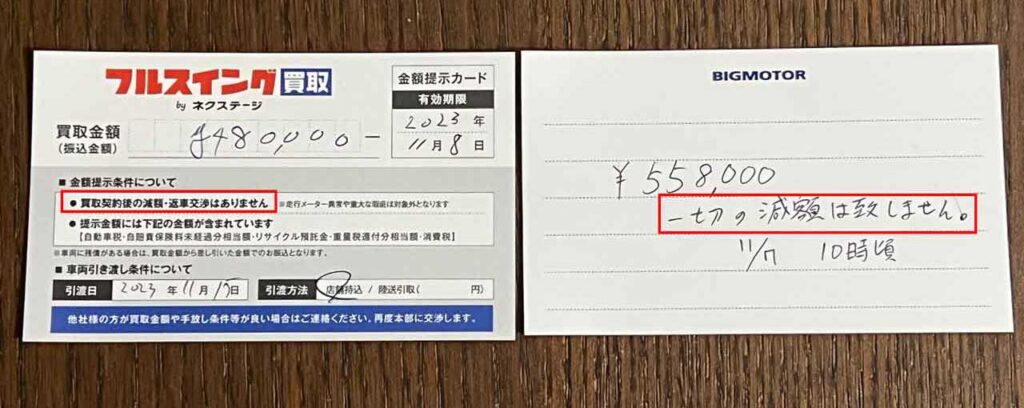 フルスイング買取
by ネクステージ
金額提示カード
有効期限
2023年
11月8日
買取金額
(振込金額)
¥480,000-
■ 金額提示条件について
● 買取契約後の減額・返車交渉はありません ※走行メーター異常や重大な瑕疵は対象外となります
● 提示金額には下記の金額が含まれています
【自動車税・自賠責保険料未経過分相当額・リサイクル預託金・重量税還付分相当額・消費税】
※車両に残債がある場合は、買取金額から差し引いた金額でのお振込となります。
■ 車両引き渡し条件について
引渡日 2023年11月 日 引渡方法 店舗持込 / 陸送引取( 円)
他社様の方が買取金額や手放し条件等が良い場合はご連絡ください。再度本部に交渉します。
BIGMOTOR
¥558,000
一切の減額は致しません。
11/7 10時頃